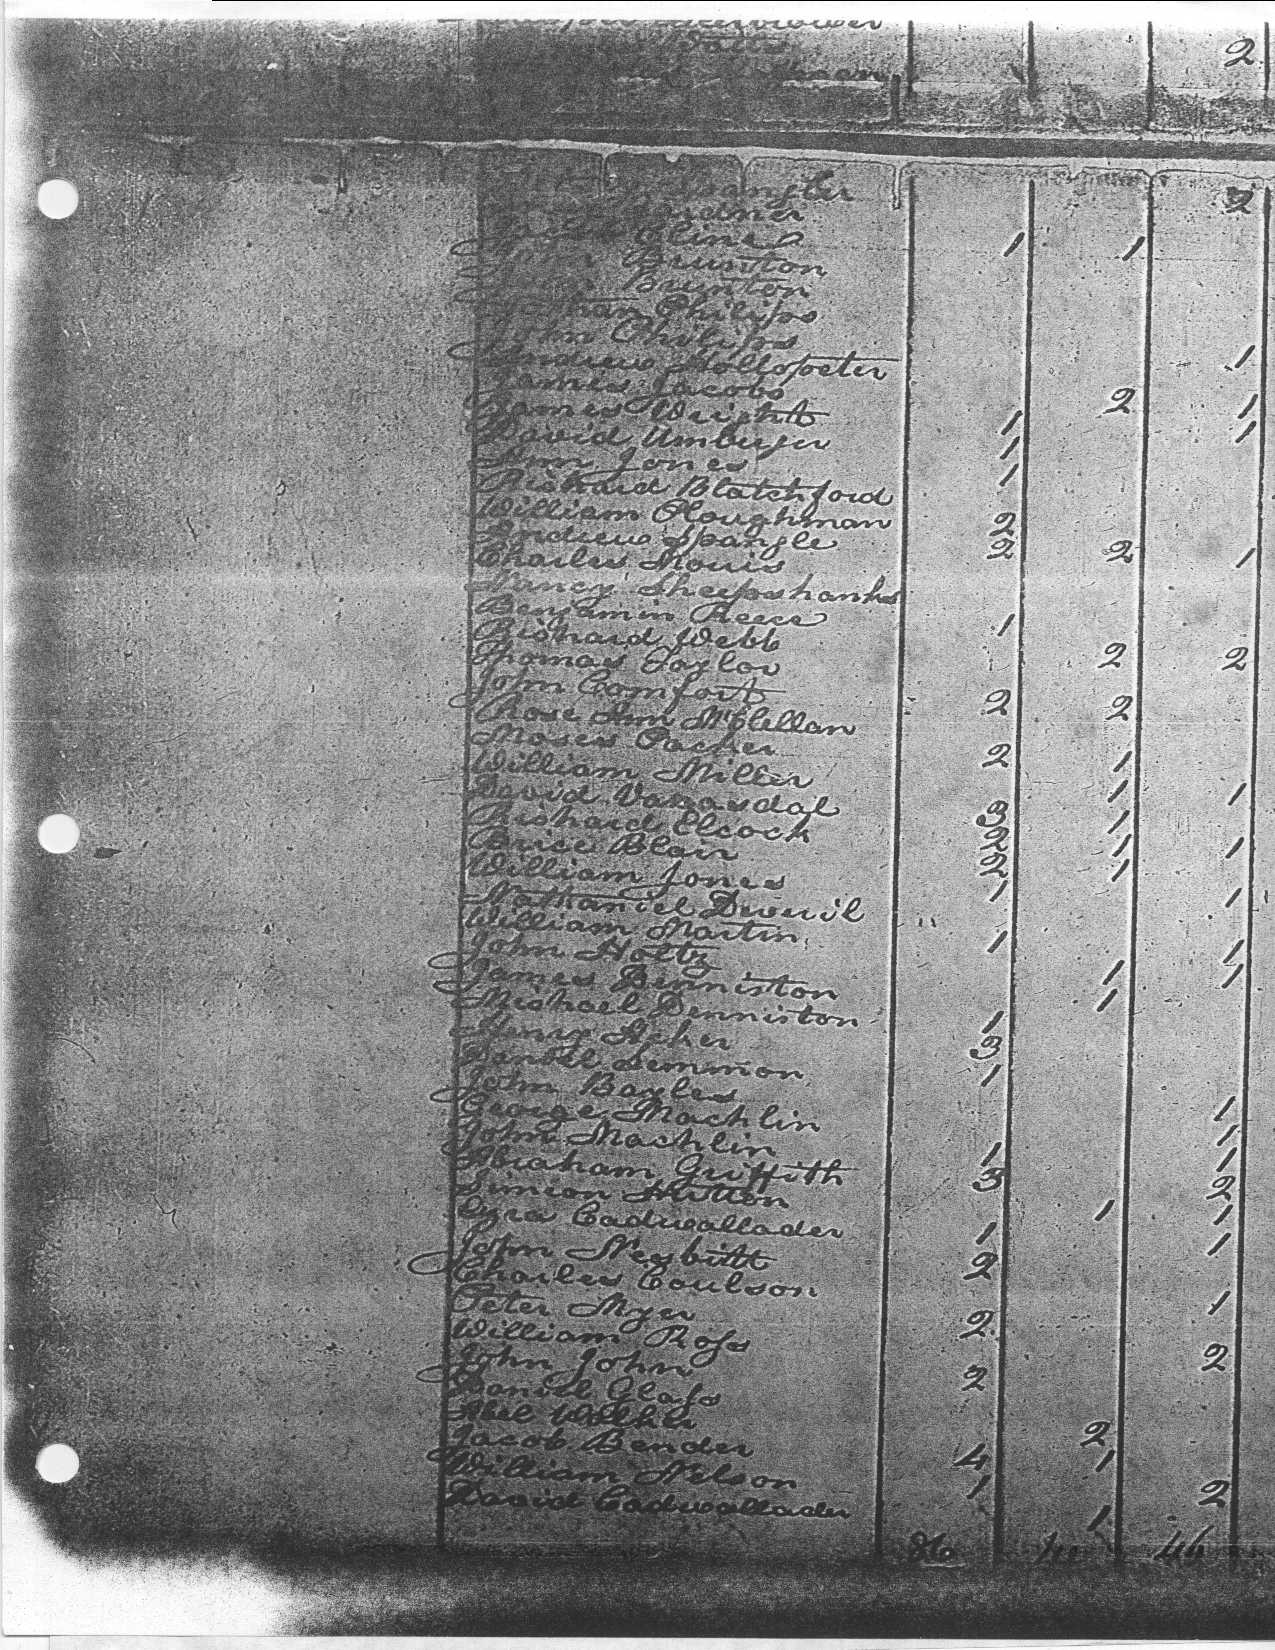 2
Spangler 2
Gardner
Cline 1 1
Bruniton
Bruniton
Philips
John Philips
Andrew Hollopeter 1
James Jacobs
James Wright 2 1
David Umbuger 1 1
Ann Jones 1
Richard Blatchford 1
William Ploughman
Andrew Spangle 2
Charles Morris 2 2 1
Nancy Sheepshanks
Benjamin Reece
Richard Webb 1
Thomas Taylor 2 2
John Comfort
Rose Ann McClellan 2 2
Moses Packer
William Miller 2 1
David Vanasdal 1 1
Richard Elcock 3 1
Brice Blair 2 1 1
William Jones 2 1
Nathaniel Deveril 1 1
William Martin
John Holtz 1 1
James Benniston 1 1
Michael Denniston 1
Henry Acker 1
Daniel Lemmon 3
John Bayles 1
George Machlin 1
John Machlin 1
Abraham Griffith 1 1
Simeon Hutton 3 2
Cyra Cadwallader 1 1
John Nesbitt 1 1
Charles Coulson 2
Peter Myer 1
William Ross 2
John John 2
Daniel Glass 2
Abel Walker
Jacob Bender 2
William Nelson 4 1
David Cadwallader 1 2
1
86 46